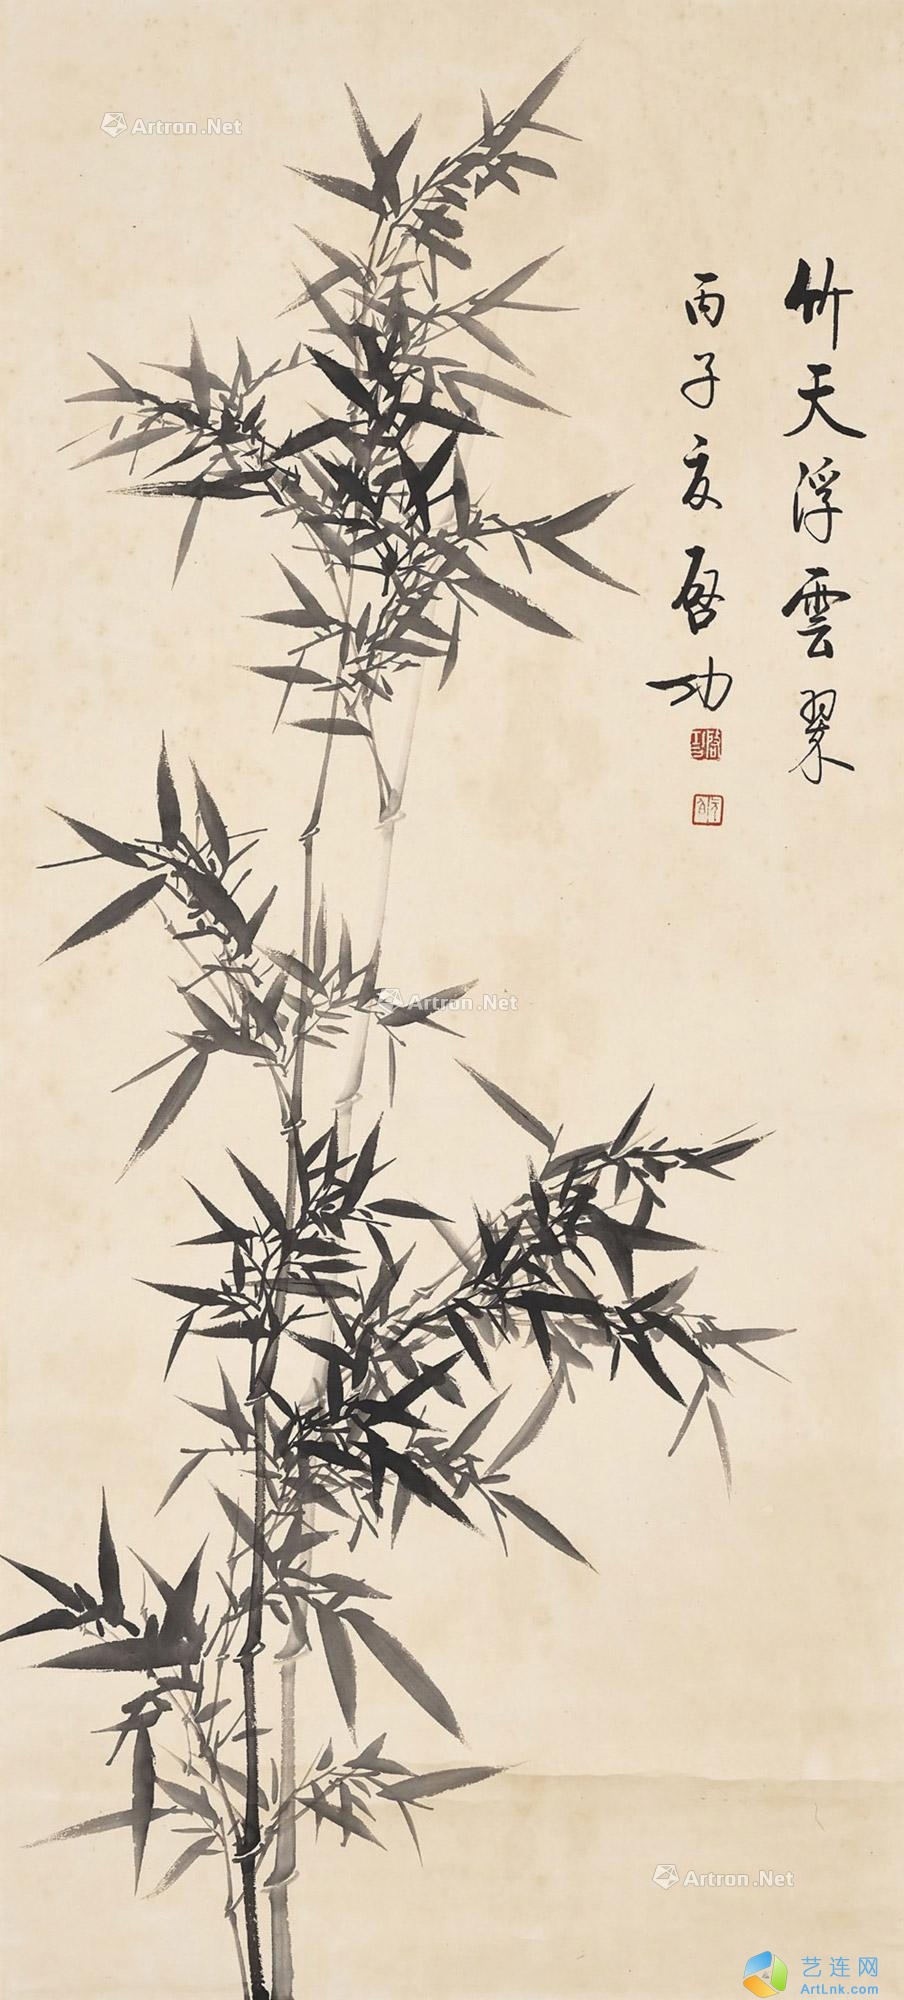 竹天浮雲翠
丙子夏啓功
Artron.Net
Artron.Net
Artron.Net
艺连网
ArtLnk.com